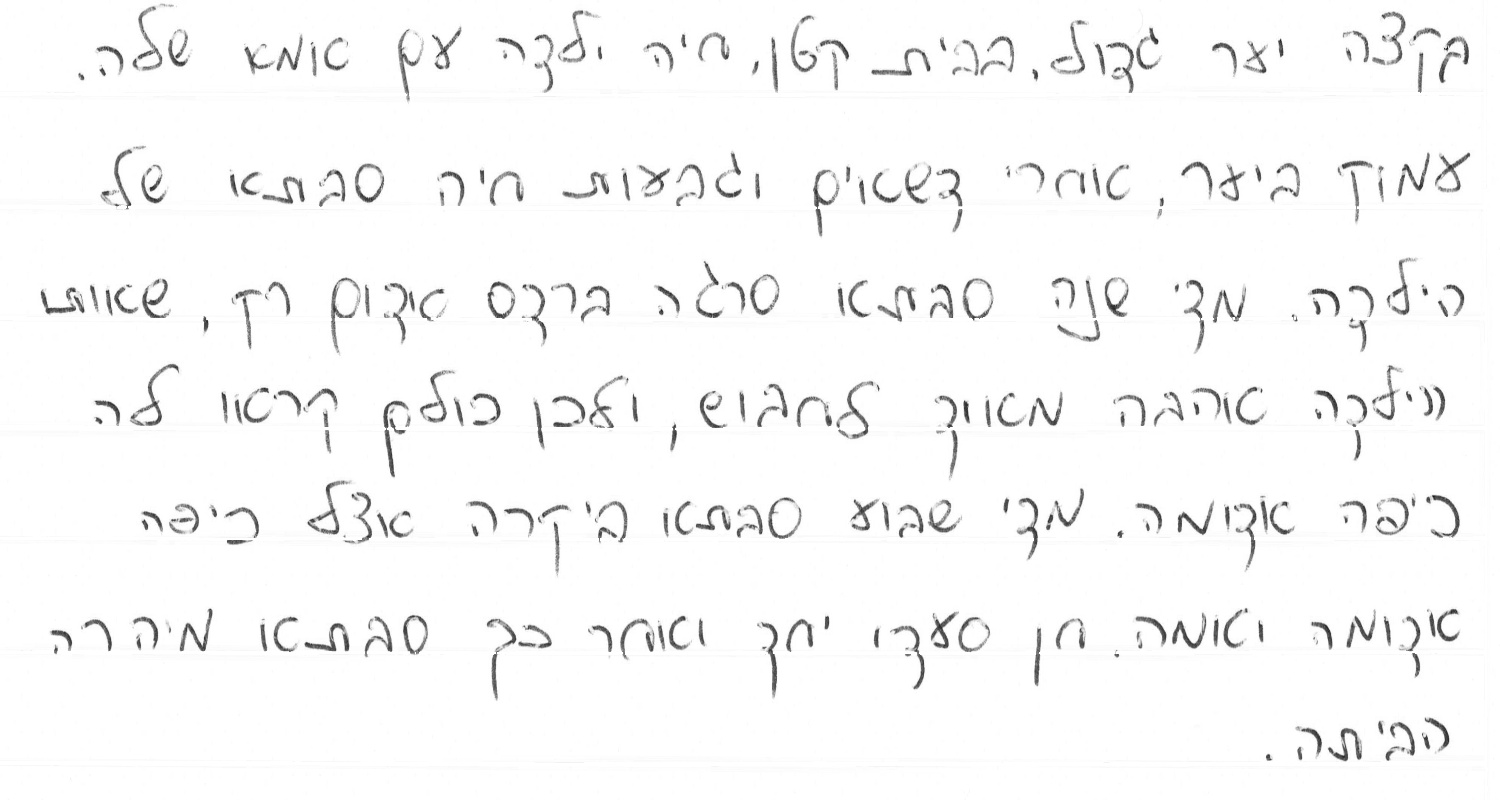 בקצה יער גדול, בבית קטן, חיה ילדה עם אמא שלה.
עמוק ביער, אחרי דשאים וגבעות חיה סבתא של
הילדה. מדי שנה סבתא סרגה ברדס אדום רך, שאותו
הילדה אהבה מאוד לחבוש, ולכן כולם קראו לה
כיפה אדומה. מדי שבוע סבתא ביקרה אצל כיפה
אדומה ואמה. הן סעדו יחד ואחר כך סבתא מיהרה
הביתה.